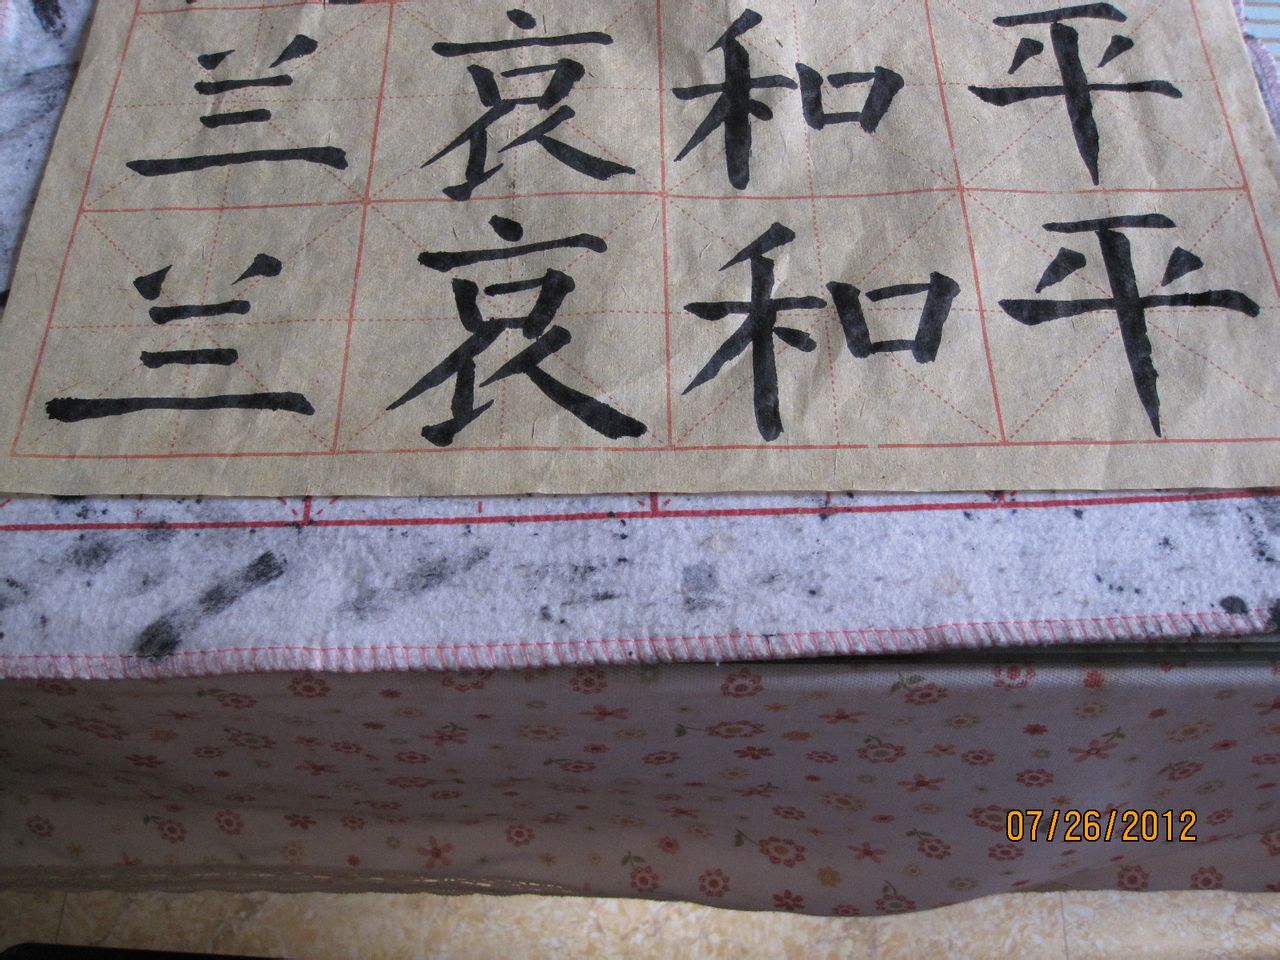 兰哀和平
兰哀和平
07/26/2012